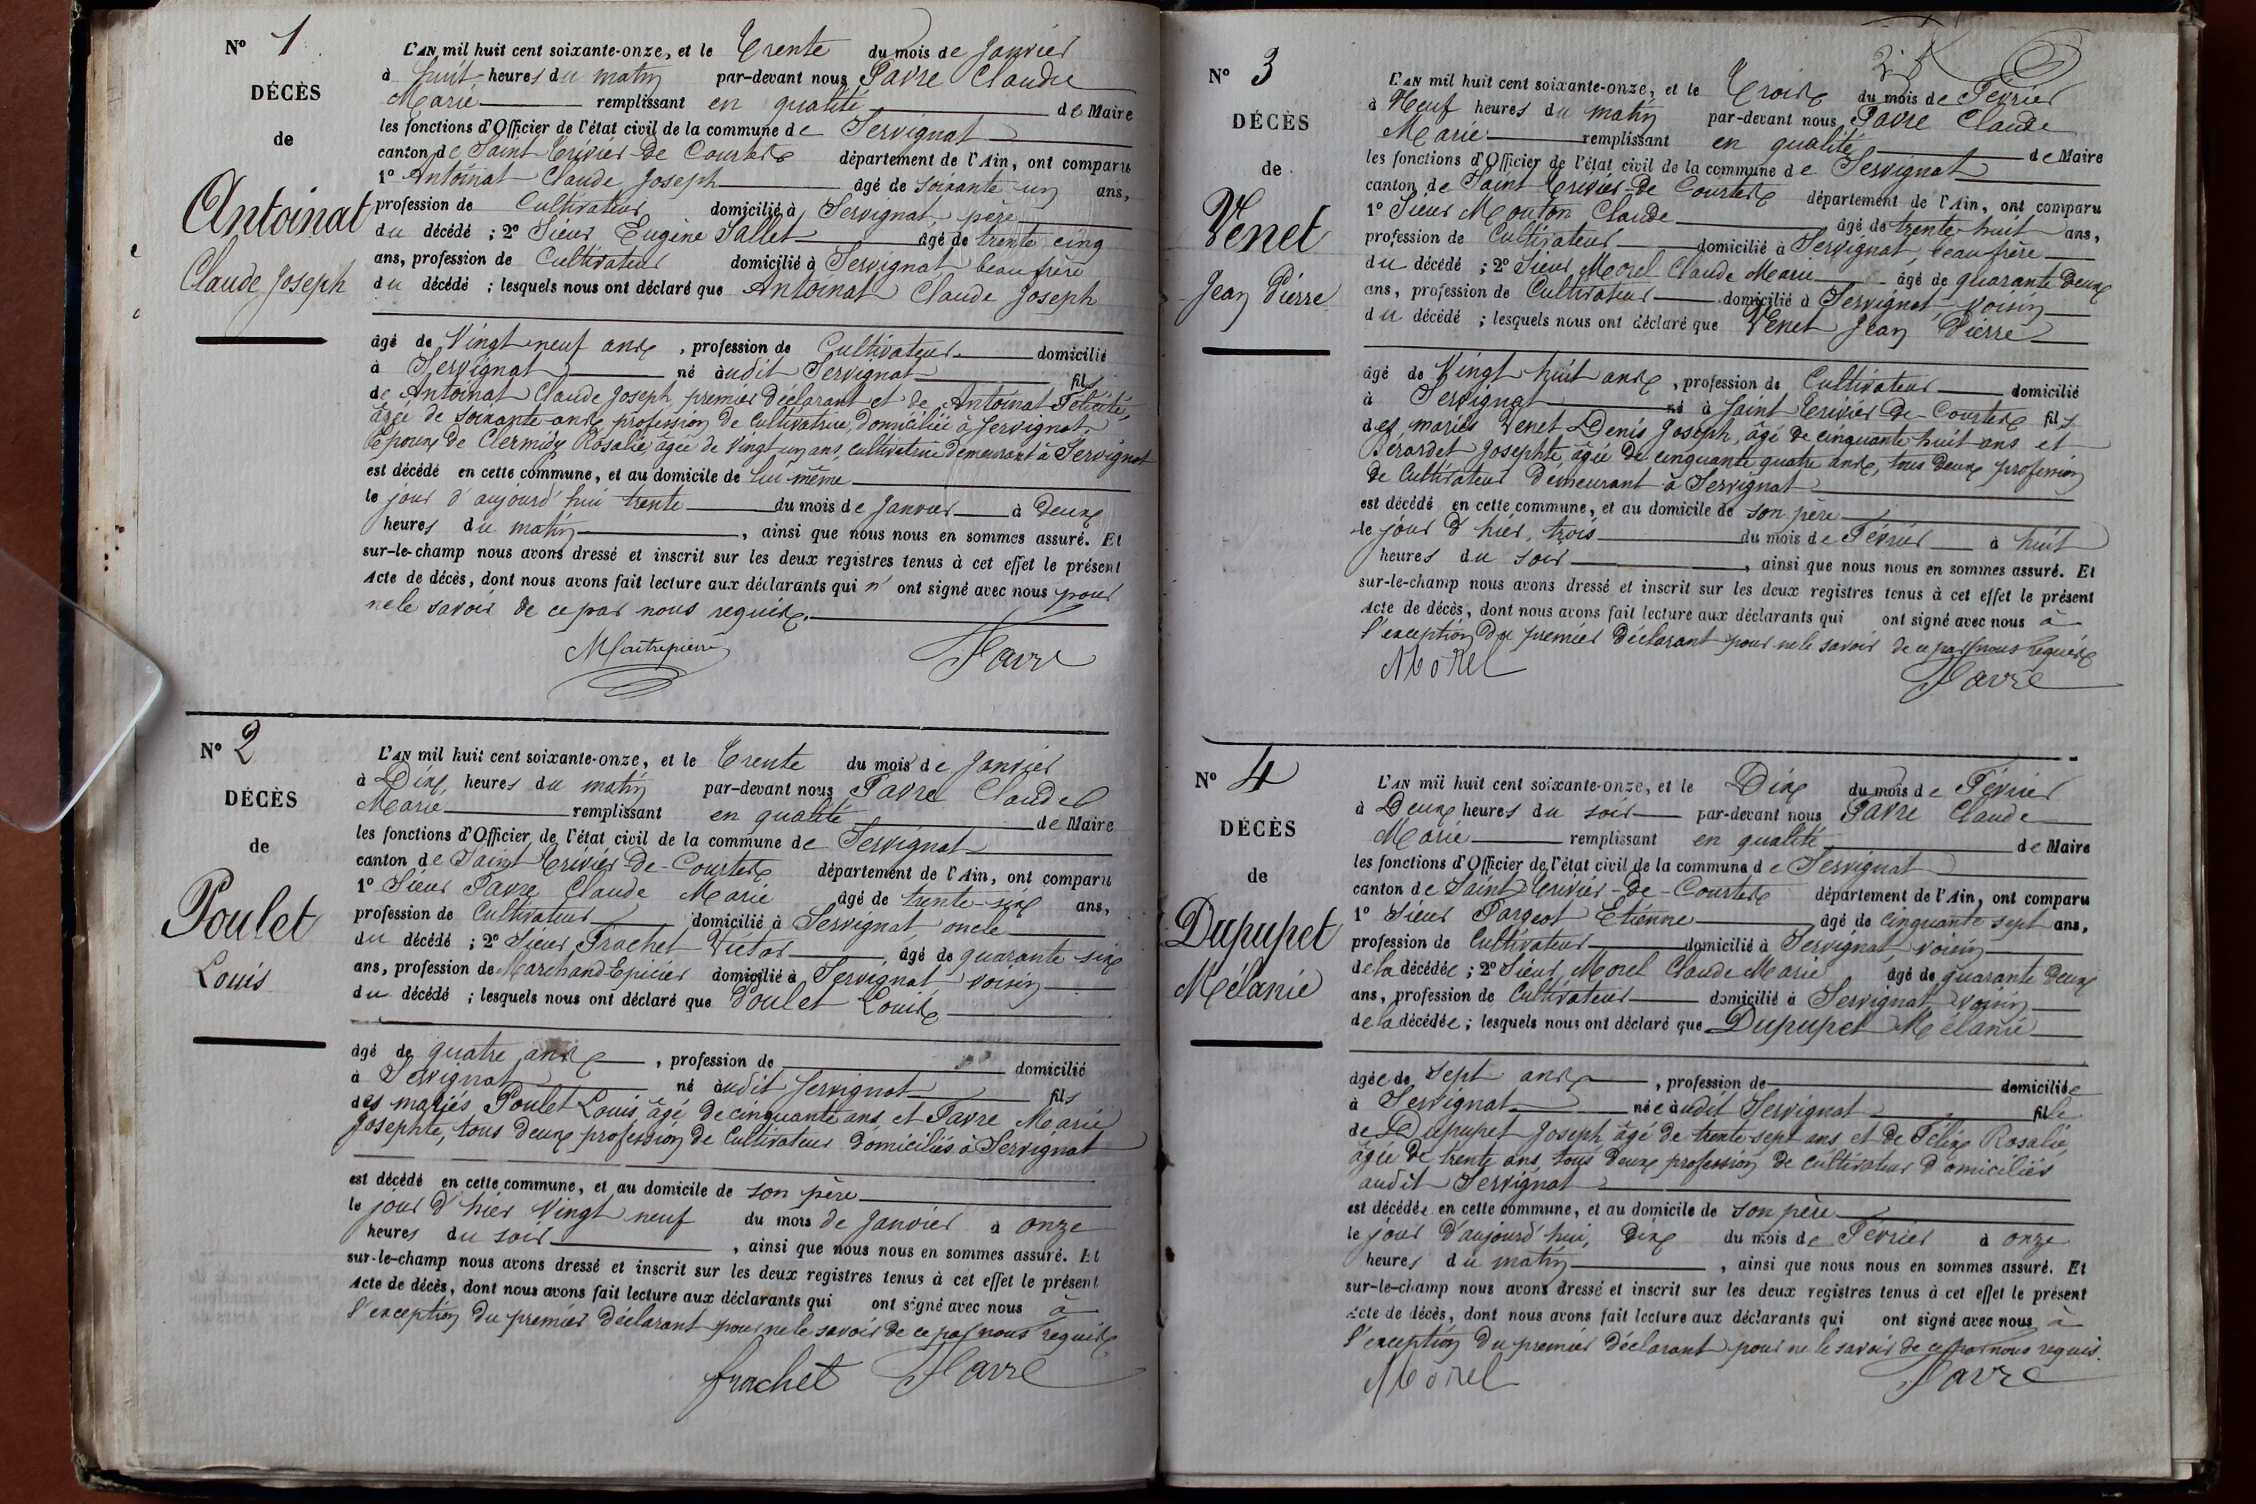 Nº 1
DÉCÈS
de
Antoinat
Claude Joseph
L'AN mil huit cent soixante-onze, et le Trente du mois de Janvier
à huit heures du matin par-devant nous Favre Claude
Marie remplissant en qualité de Maire
les fonctions d'Officier de l'état civil de la commune de Servignat
canton de Saint Trivier-de Courtes département de l'Ain, ont comparu
1º Antoinat Claude Joseph âgé de soixante-un ans,
profession de Cultivateur domicilié à Servignat, père
du décédé ; 2º Sieur Eugène Sallet âgé de trente cinq
ans, profession de Cultivateur domicilié à Servignat beau frère
du décédé ; lesquels nous ont déclaré que Antoinat Claude Joseph
âgé de Vingt neuf ans , profession de Cultivateur domicilié
à Servignat né audit Servignat fils
de Antoinat Claude Joseph, premier déclarant et de Antoinat Félicité,
âgée de soixante ans profession de cultivatrice, domiciliée à Servignat
Epoux de Clermidy Rosalie âgée de vingt-un ans, cultivatrice demeurant à Servignat
est décédé en cette commune, et au domicile de lui-même
le jour d'aujourd'hui trente du mois de Janvier à deux
heures du matin , ainsi que nous nous en sommes assuré. Et
sur-le-champ nous avons dressé et inscrit sur les deux registres tenus à cet effet le présent
Acte de décès, dont nous avons fait lecture aux déclarants qui n' ont signé avec nous pour
ne le savoir de ce par nous requis.
Maitrepierre Favre
Nº 2
DÉCÈS
de
Poulet
Louis
L'AN mil huit cent soixante-onze, et le Trente du mois de Janvier
à Dix heures du matin par-devant nous Favre Claude
Marie remplissant en qualité de Maire
les fonctions d'Officier de l'état civil de la commune de Servignat
canton de Saint Trivier-De-Courtes département de l'Ain, ont comparu
1º Sieur Favre Claude Marie âgé de trente-six ans,
profession de Cultivateur domicilié à Servignat oncle
du décédé ; 2º Sieur Frachet Victor âgé de quarante six
ans, profession de Marchand Epicier domicilié à Servignat voisin
du décédé ; lesquels nous ont déclaré que Poulet Louis
âgé de quatre ans , profession de domicilié
à Servignat né audit Servignat fils
des mariés Poulet Louis, âgé de cinquante ans, et Favre Marie
Josephte, tous deux profession de Cultivateur domiciliés à Servignat
est décédé en cette commune, et au domicile de son père
le jour d'hier Vingt neuf du mois de Janvier à onze
heures du soir , ainsi que nous nous en sommes assuré. Et
sur-le-champ nous avons dressé et inscrit sur les deux registres tenus à cet effet le présent
Acte de décès, dont nous avons fait lecture aux déclarants qui ont signé avec nous à
l'exception du premier déclarant pour ne le savoir de ce par nous requis
frachet Favre
Nº 3
DÉCÈS
de
Venet
Jean Pierre
L'AN mil huit cent soixante-onze, et le Trois du mois de Février
à Neuf heures du matin par-devant nous Favre Claude
Marie remplissant en qualité de Maire
les fonctions d'Officier de l'état civil de la commune de Servignat
canton de Saint Trivier-De Courtes département de l'Ain, ont comparu
1º Sieur Mouton Claude âgé de trente-huit ans,
profession de Cultivateur domicilié à Servignat, beau frère
du décédé ; 2º Sieur Morel Claude Marie âgé de quarante deux
ans, profession de Cultivateur domicilié à Servignat, voisin
du décédé ; lesquels nous ont déclaré que Venet Jean Pierre
âgé de Vingt huit ans , profession de Cultivateur domicilié
à Servignat né à Saint Trivier De-Courtes fils
des mariés Venet Denis Joseph, âgé de cinquante huit ans et
Berardet Josephte âgée de cinquante quatre ans, tous deux profession
de Cultivateur Demeurant à Servignat
est décédé en cette commune, et au domicile de son père
le jour d'hier, trois du mois de Février à huit
heures du soir , ainsi que nous nous en sommes assuré. Et
sur-le-champ nous avons dressé et inscrit sur les deux registres tenus à cet effet le présent
Acte de décès, dont nous avons fait lecture aux déclarants qui ont signé avec nous à
l'exception du premier déclarant pour ne le savoir de ce par nous requis
Morel Favre
Nº 4
DÉCÈS
de
Dupupet
Mélanie
L'AN mil huit cent soixante-onze, et le Dix du mois de Février
à Deux heures du soir par-devant nous Favre Claude
Marie remplissant en qualité de Maire
les fonctions d'Officier de l'état civil de la commune de Servignat
canton de Saint Trivier-De-Courtes département de l'Ain, ont comparu
1º Sieur Pargeot Etienne âgé de cinquante sept ans,
profession de Cultivateur domicilié à Servignat, voisin
de la décédée ; 2º Sieur Morel Claude Marie âgé de quarante deux
ans, profession de Cultivateur domicilié à Servignat voisin
de la décédée ; lesquels nous ont déclaré que Dupupet Mélanie
âgée de sept ans , profession de domiciliée
à Servignat née audit Servignat fille
de Dupupet Joseph, âgé de trente sept ans et de Félix Rosalie,
âgée de trente ans, tous deux profession de cultivateur domiciliés
audit Servignat
est décédée en cette commune, et au domicile de son père
le jour d'aujourd'hui, dix du mois de Février à onze
heures du matin , ainsi que nous nous en sommes assuré. Et
sur-le-champ nous avons dressé et inscrit sur les deux registres tenus à cet effet le présent
Acte de décès, dont nous avons fait lecture aux déclarants qui ont signé avec nous à
l'exception du premier déclarant pour ne le savoir de ce par nous requis.
Morel Favre